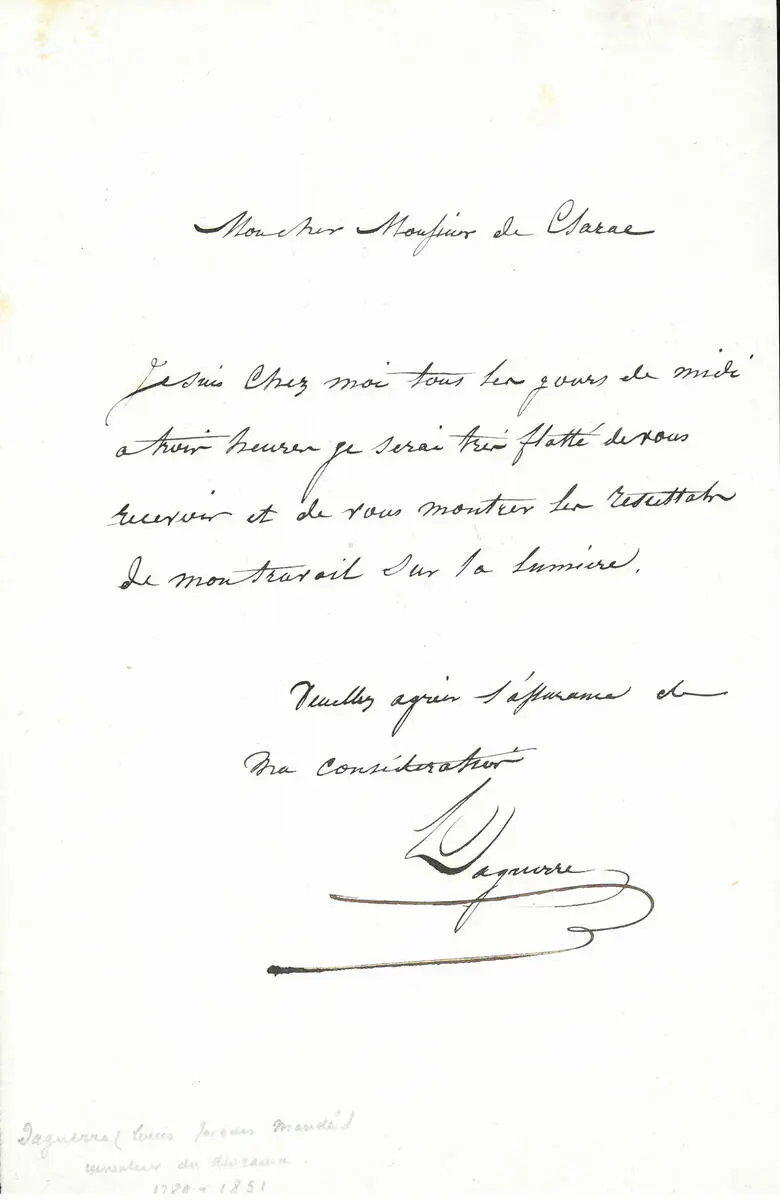 Mon cher Monsieur de Clarac
Je suis Chez moi tous les jours de midi
a trois heures je serai très flatté de vous
recevoir et de vous montrer les resultats
de mon travail sur la lumière.
Veuillez agréer l'assurance de
ma considération
Daguerre
Daguerre (Louis Jacques Mandé)
inventeur du diorama
1789 - 1851